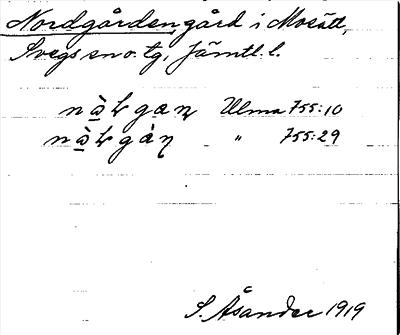 Nordgården, gård i Mosätt,
Svegs sn o. tg, Jämtl. l.
Ulma 755:10
" 755:29
S. Åsander 1919